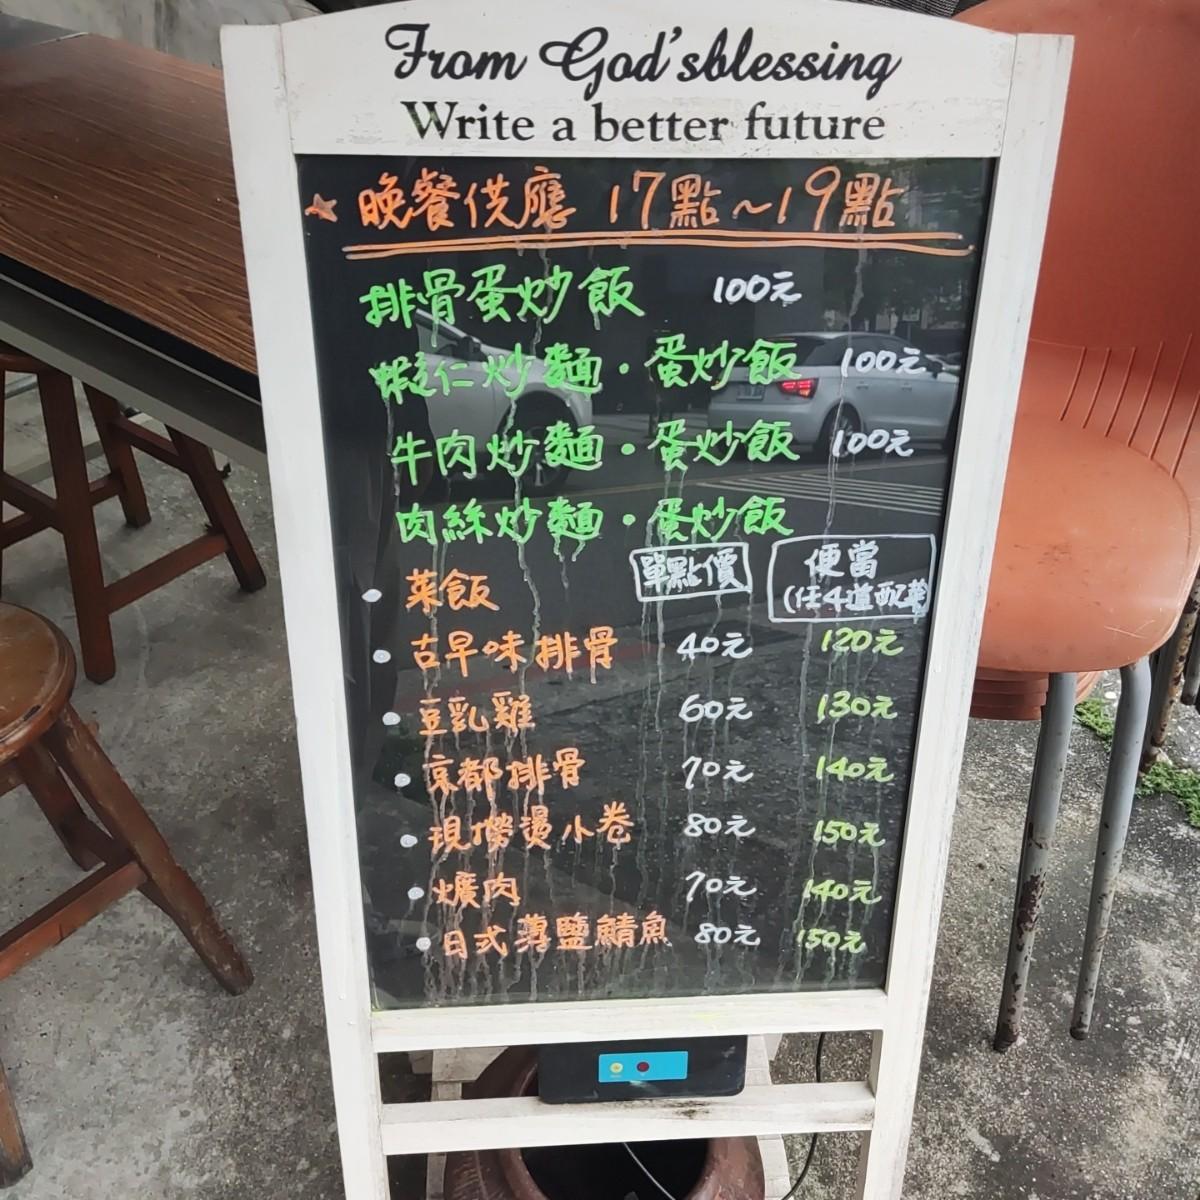 From God'sblessing
Write a better future
☆ 晚餐供應 17點~19點
排骨蛋炒飯 100元
蝦仁炒麵・蛋炒飯 100元
牛肉炒麵・蛋炒飯 100元
肉絲炒麵・蛋炒飯
單點價 便當
(任4道配菜
• 菜飯
• 古早味排骨 40元 120元
• 豆乳雞 60元 130元
• 京都排骨 70元 140元
• 現撈燙小卷 80元 150元
• 爌肉 70元 140元
• 日式薄鹽鯖魚 80元 150元